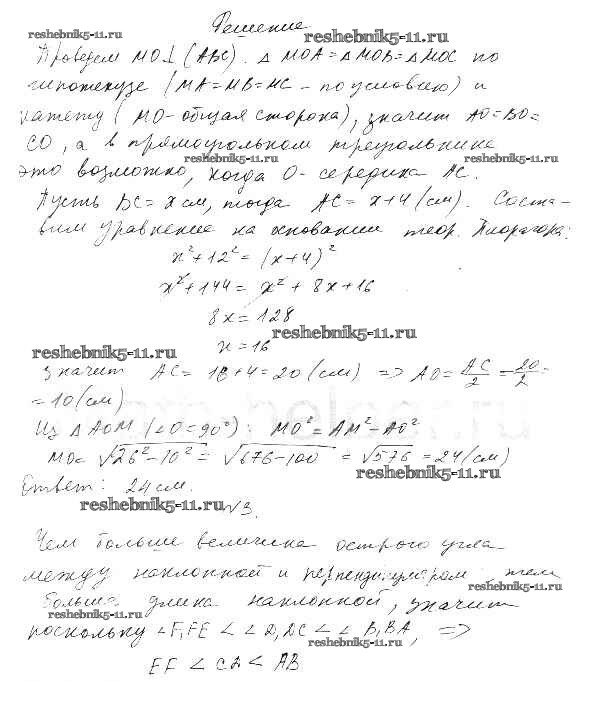 Решение
reshebnik5-11.ru reshebnik5-11.ru
Проведем MO⊥(ABC). △MOA=△MOB=△MOC по
гипотенузе (MA=MB=MC - по условию) и
катету (MO - общая сторона), значит AO=BO=
CO, а в прямоугольном треугольнике
reshebnik5-11.ru reshebnik5-11.ru
это возможно, когда O - середина AC.
Пусть BC = x см, тогда AC = x+4 (см). Соста-
вим уравнение на основании теор. Пифагора:
x²+12² = (x+4)²
x²+144 = x²+8x+16
8x = 128
reshebnik5-11.ru
x = 16
reshebnik5-11.ru
значит AC = 16+4=20 (см) => AO = AC/2 = 20/2 =
= 10 (см)
Из △AOM (∠O=90°): MO² = AM²-AO²
MO = √26²-10² = √676-100 = √576 = 24 (см)
reshebnik5-11.ru
Ответ: 24 см.
reshebnik5-11.ru №3.
Чем больше величина острого угла
между наклонной и перпендикуляром тем
reshebnik5-11.ru
больше длина наклонной, значит
reshebnik5-11.ru
поскольку ∠F₁FE < ∠D₁DC < ∠B₁BA, =>
reshebnik5-11.ru
EF < CD < AB